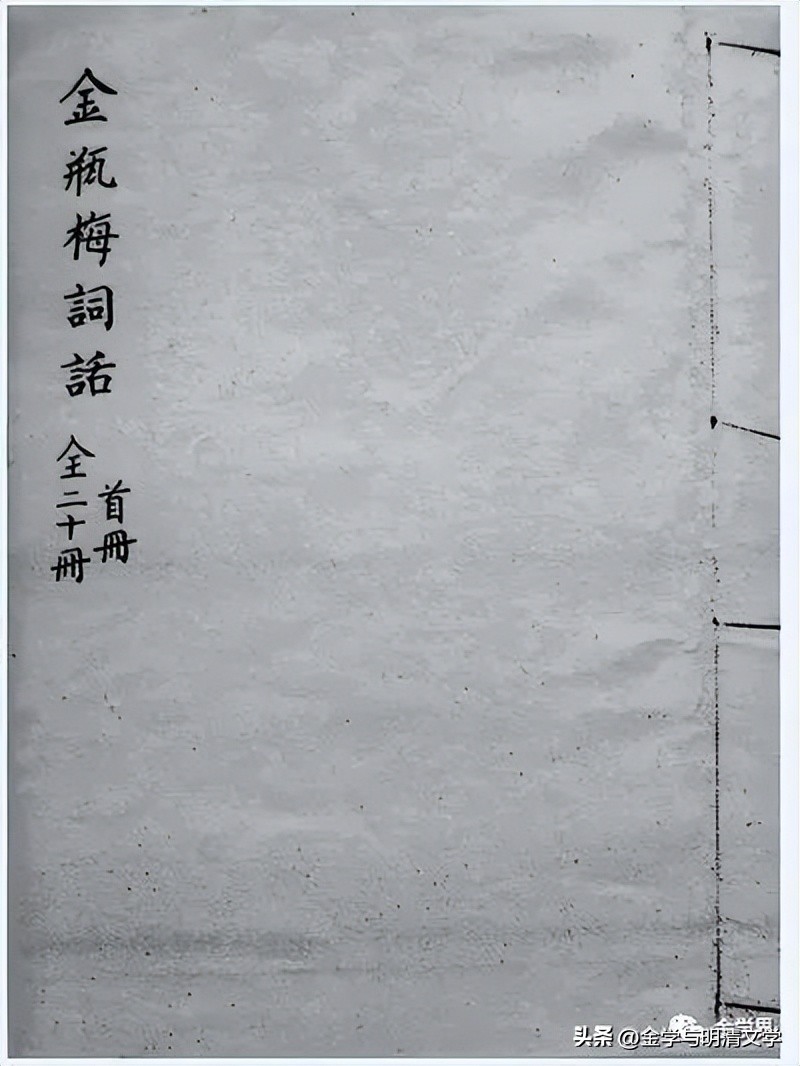 金瓶梅詞話
首冊
全二十冊
头条 @金学与明清文学